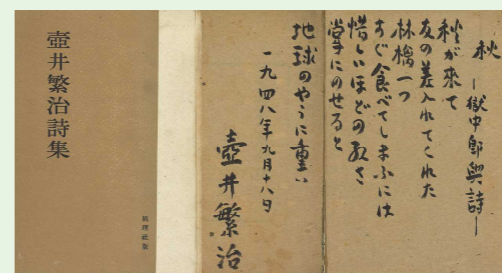 壺井繁治詩集
眞理社版
秋
―獄中卽興詩―
秋が来て
友の差入れてくれた
林檎一つ
すぐ食べてしまふには
惜しいほどの紅さ
掌にのせると
地球のやうに重い
一九四八年九月十八日
壺井繁治